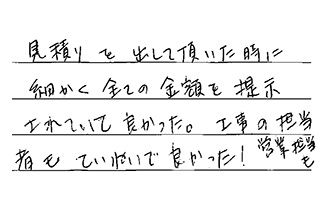 見積りを出して頂いた時に
細かく全ての金額を提示
されていて良かった。工事の担当
者もていねいで良かった！営業担当も